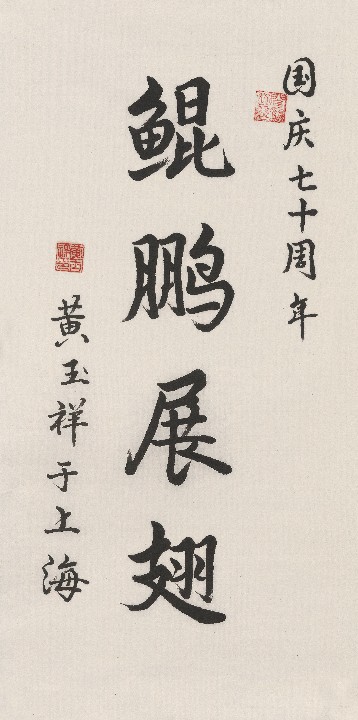 国庆七十周年
鲲鹏展翅
黄玉祥于上海